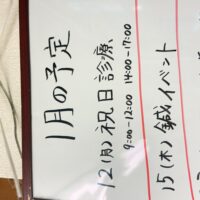 1月の予定
12(月)祝日診療
9:00-12:00 14:00-17:00
15(木)鍼イベント